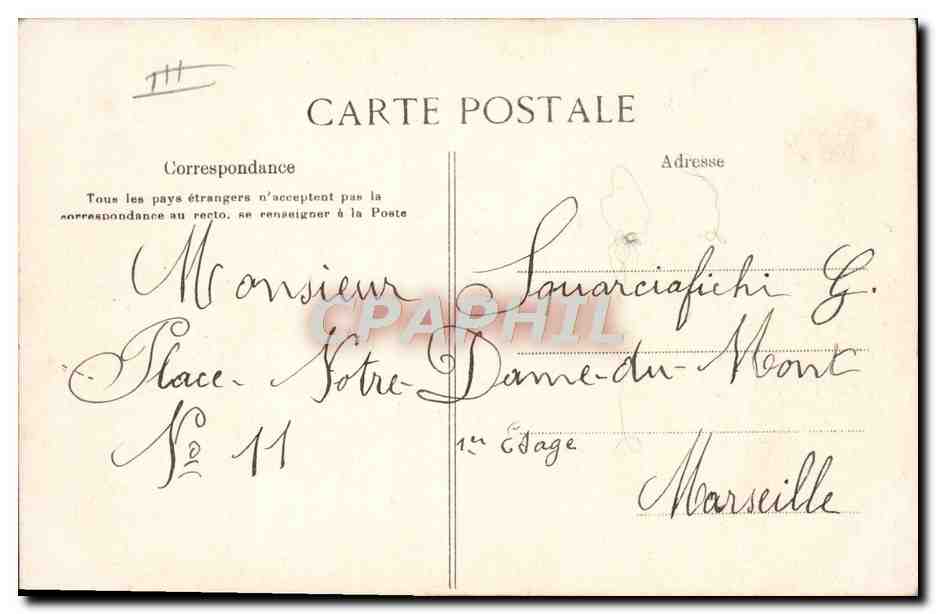 CARTE POSTALE
Correspondance
Adresse
Tous les pays étrangers n'acceptent pas la
correspondance au recto, se renseigner à la Poste
Monsieur Souarciafichi G.
Place Notre-Dame-du-Mont
No 11 1er Etage
Marseille
CPAPHIL